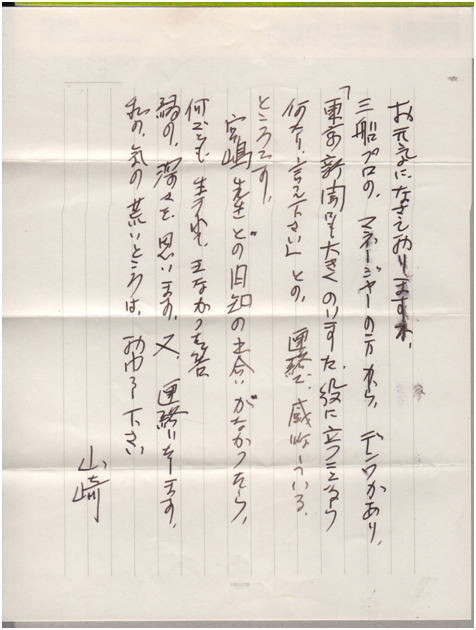 お元気になさっておりますか、
三船プロの、マネージャーの方から、デンワがあり、
「東京新聞にも大きくのいますた、役に立つことあらう
何なり、言え下さい」との、連絡で、感激している、
ところです、
宮嶋先生との旧知の出合いがなかったら、
何ごとも生まれて、こなかった筈
縁の、深さを思います。又、連絡いたします、
私の、気の荒いところは、お叱り下さい
山崎